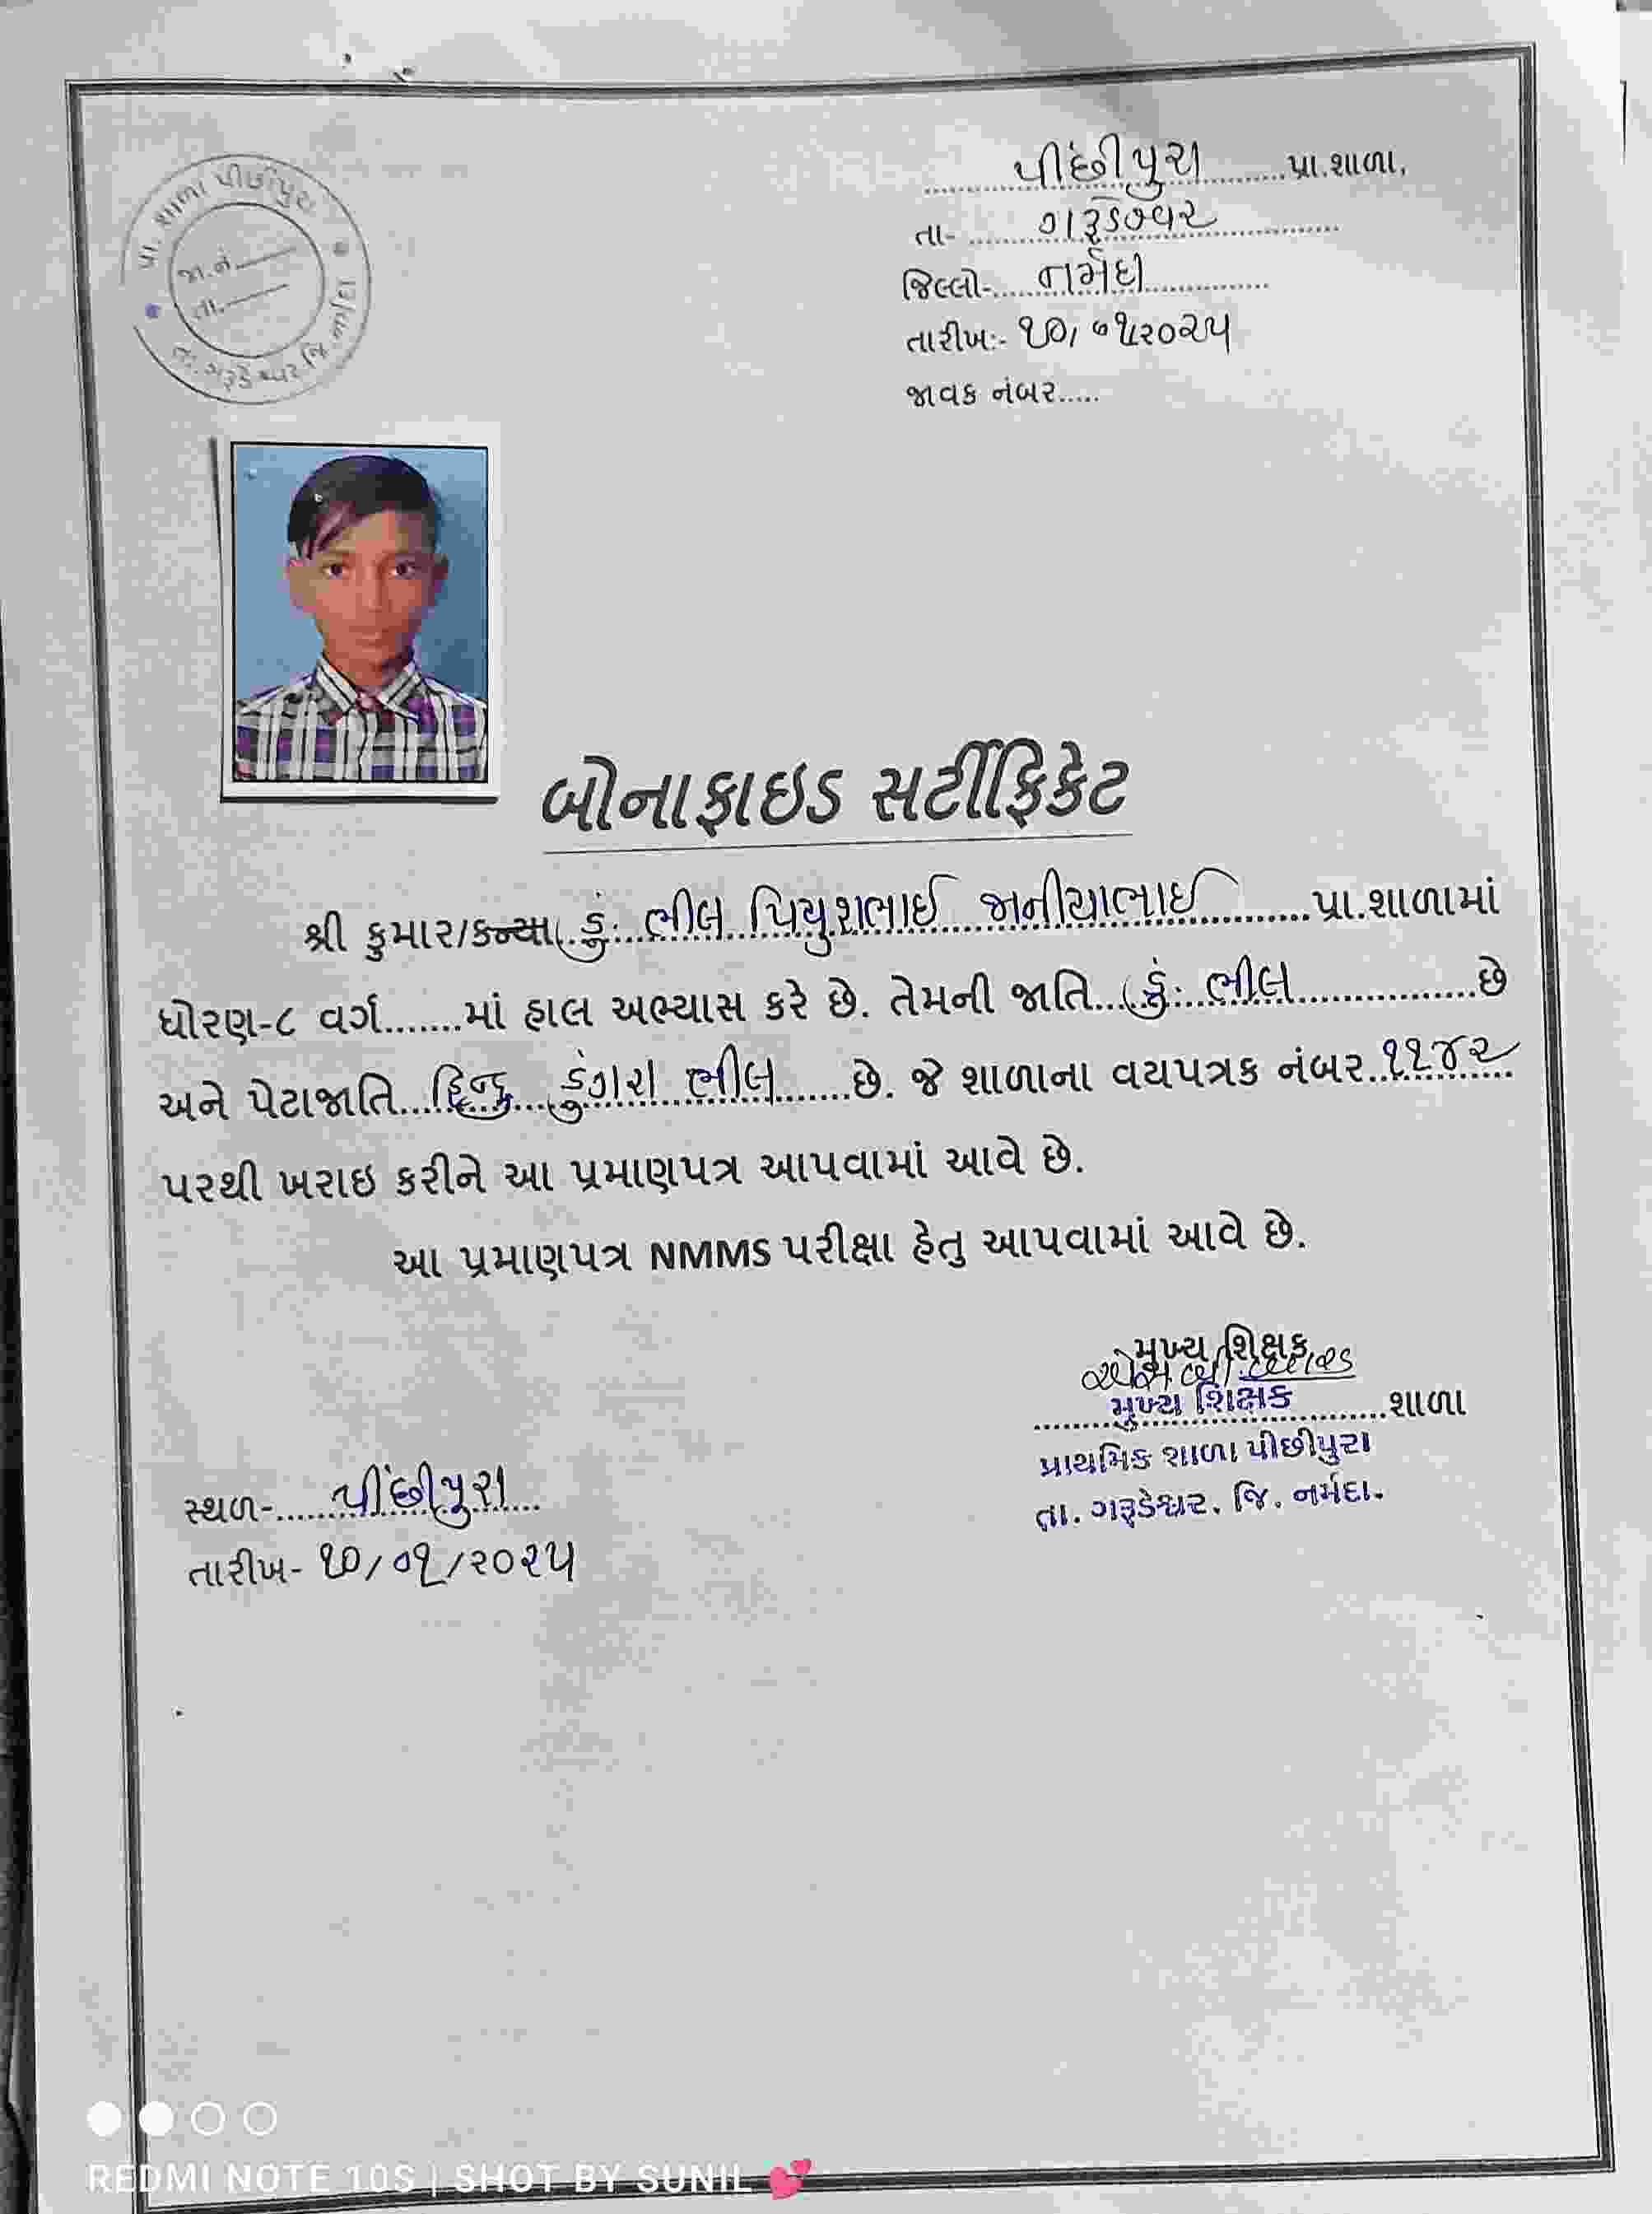 પ્રા. શાળા પીછીપુરા
જા.નં.
તા.
તા. ગરૂડેશ્વર જિ નર્મદા
પીંછીપુરા પ્રા.શાળા,
તા- ગરૂડેશ્વર
જિલ્લો- નર્મદા
તારીખઃ- ૧૦/૦૧/૨૦૨૫
જાવક નંબર.....
બોનાફાઇડ સર્ટીફિકેટ
શ્રી કુમાર/કન્યા ડું. ભીલ પિયુશભાઈ જાનીયાભાઈ પ્રા.શાળામાં
ધોરણ-૮ વર્ગ.......માં હાલ અભ્યાસ કરે છે. તેમની જાતિ ડું. ભીલ છે
અને પેટાજાતિ હિન્દુ ડુંગરા ભીલ છે. જે શાળાના વયપત્રક નંબર ૧૧૪૨
પરથી ખરાઇ કરીને આ પ્રમાણપત્ર આપવામાં આવે છે.
આ પ્રમાણપત્ર NMMS પરીક્ષા હેતુ આપવામાં આવે છે.
મુખ્ય શિક્ષક
મુખ્ય શિક્ષક શાળા
પ્રાથમિક શાળા પીછીપુરા
તા. ગરૂડેશ્વર. જિ. નર્મદા.
સ્થળ- પીંછીપુરા
તારીખ- ૧૦/૦૧/૨૦૨૫
REDMI NOTE 10S | SHOT BY SUNIL 💕